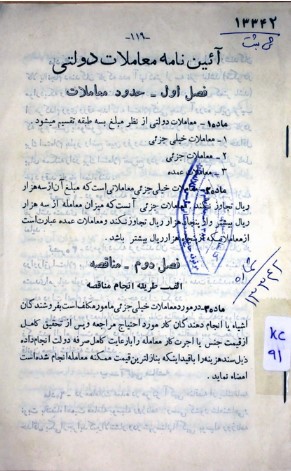 ۱۳۳۴۲
-۱۱۹-
آئین نامه معاملات دولتی
فصل اول - حدود معاملات
ماده۱- معاملات دولتی از نظر مبلغ بسه طبقه تقسیم میشود
۱ - معاملات خیلی جزئی
۲ - معاملات جزئی
۳ - معاملات عمده
ماده۲- معاملات خیلی جزئی معاملاتی است که مبلغ آن از سه هزار
ریال تجاوز نکند معاملات جزئی آنست که میزان معامله از سه هزار
ریال بیشتر و از پنجاه هزار ریال تجاوز نکند و معاملات عمده عبارت است
از معاملاتی که از پنجاه هزار ریال بیشتر باشد.
فصل دوم - مناقصه
الف - طریقه انجام مناقصه
ماده۳- در مورد معاملات خیلی جزئی مامور مکلف است بفروشندگان
اشیاء یا انجام دهندگان کار مورد احتیاج مراجعه و پس از تحقیق کامل
از قیمت جنس یا اجرت کار معامله را با رعایت کامل صرفه دولت انجام داده
ذیل سند هزینه را با قید اینکه بنازلترین قیمت ممکنه معامله انجام شده است
امضاء نماید.
KC
91